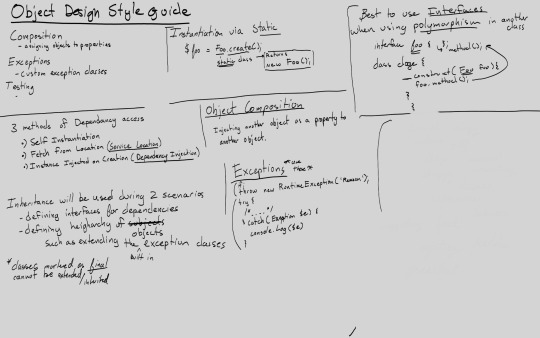 Object Design Style guide
Composition
- assigning objects to properties
Exceptions
- custom exception classes
Testing
-
Instantiation via Static
$foo = Foo.create();
static class
Returns
new Foo();
Best to use Interfaces
when using polymorphism in another
class
interface foo { method();
class {
construct( Foo foo){
foo.method();
}
}
3 methods of Dependancy access
•) Self Instantiation
•) Fetch from Location (Service Location)
•) Instance Injected on Creation (Dependancy Injection)
Object Composition
Injecting another object as a property to
another object.
Exceptions
throw new RuntimeException('Reason');
try {
/*.....*/
} catch( Exception $e) {
console.log($e)
}
Inheritance will be used during 2 scenarios
- defining interfaces for dependencies
- defining heigharchy of subjects
objects
such as extending the exception classes
built in
* classes marked as final
cannot be extended/inherited